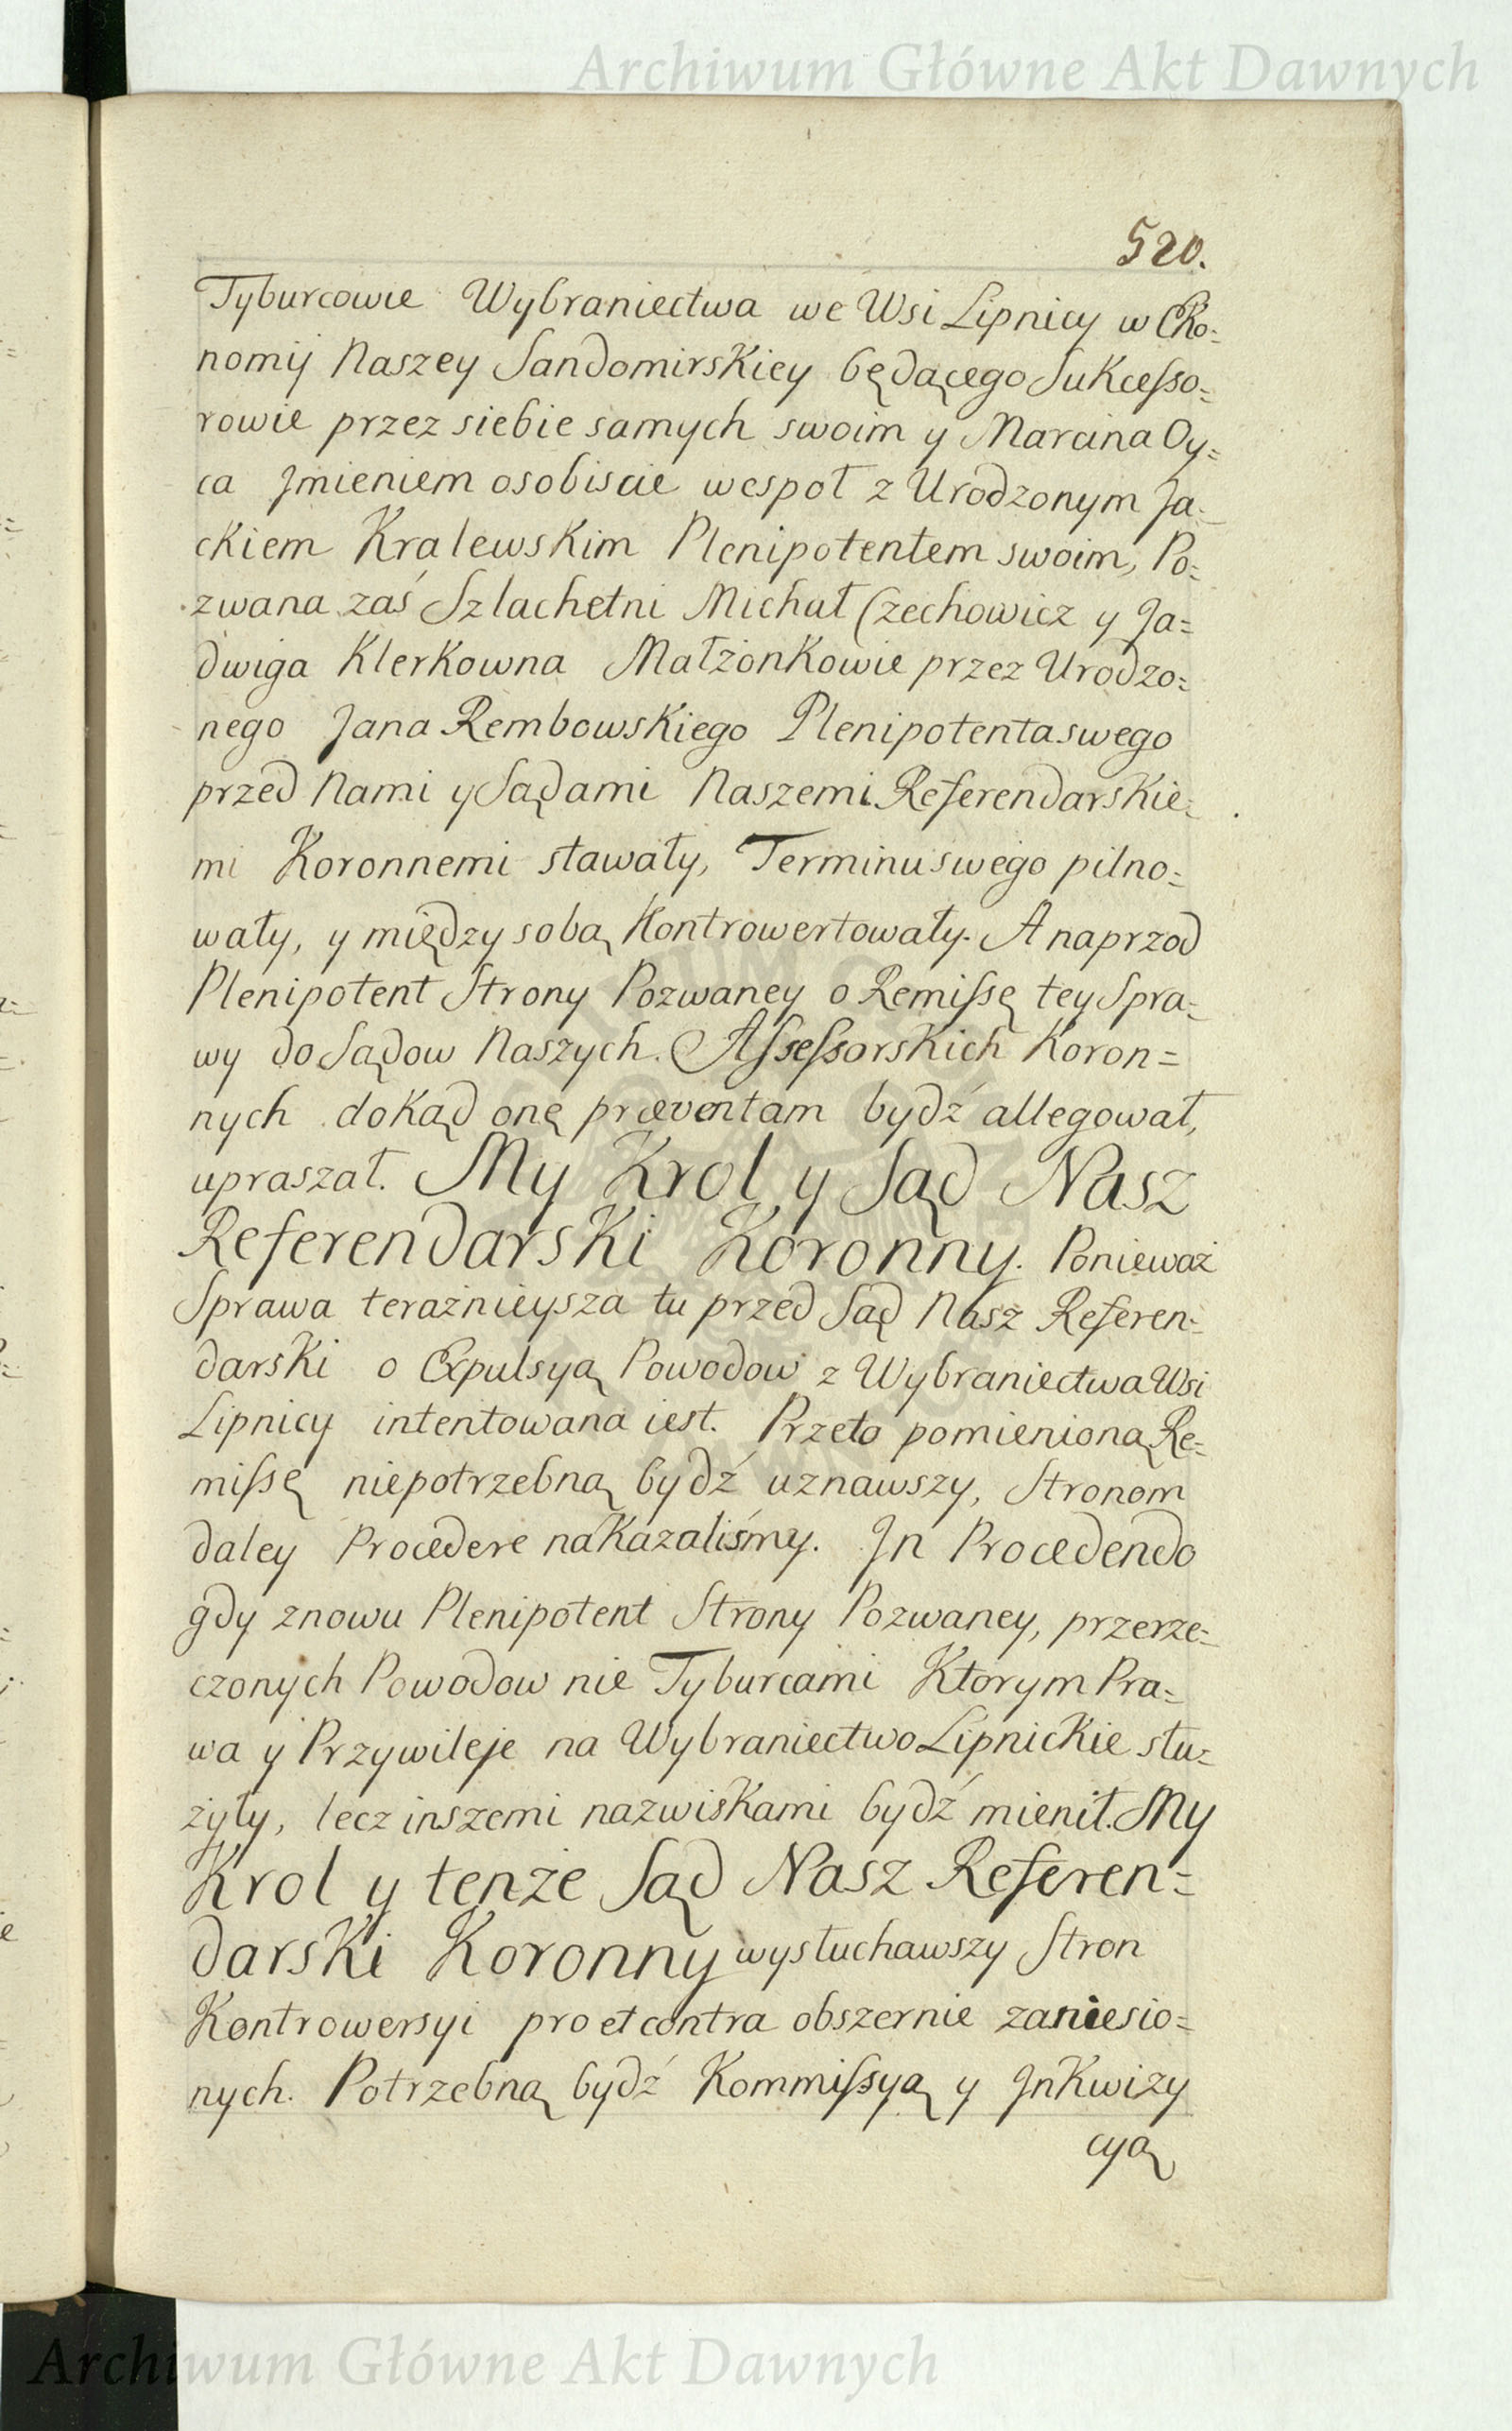 Archiwum Główne Akt Dawnych
520.
Tyburcowie Wybraniectwa we Wsi Lipnicy w Eko=
nomij Naszey Sandomirskiey będącego Sukcesso=
rowie przez siebie samych swoim y Marcina Oy=
ca Jmieniem osobiscie wespoł z Urodzonym Ja=
ckiem Kralewskim Plenipotentem swoim, Po=
zwana zaś Szlachetni Michał Czechowicz y Ja=
dwiga Klerkowna Małżonkowie przez Urodzo=
nego Jana Rembowskiego Plenipotenta swego
przed Nami y Sądami Naszemi Referendarskie=
mi Koronnemi stawały, Terminu swego pilno=
wały, y między sobą Kontrowertowały. A naprzod
Plenipotent Strony Pozwaney o Remissę tey Spra=
wy do Sądow Naszych Assessorskich Koron=
nych dokąd onę præventam bydź allegował,
upraszał. My Krol y Sąd Nasz
Referendarski Koronny. Ponieważ
Sprawa teraznieysza tu przed Sąd Nasz Referen=
darski o Expulsyą Powodow z Wybraniectwa Wsi
Lipnicy intentowana iest. Przeto pomienioną Re=
missę niepotrzebną bydź uznawszy, Stronom
daley Procedere nakazaliśmy. Jn Procedendo
gdy znowu Plenipotent Strony Pozwaney, przerze=
czonych Powodow nie Tyburcami Ktorym Pra=
wa y Przywileje na Wybraniectwo Lipnickie słu=
żyły, lecz inszemi nazwiskami bydź mienił. My
Krol y tenże Sąd Nasz Referen=
darski Koronny wysłuchawszy Stron
Kontrowersyi pro et contra obszernie zaniesio=
nych. Potrzebną bydź Kommissyą y Jnkwizy
cyą
Archiwum Główne Akt Dawnych